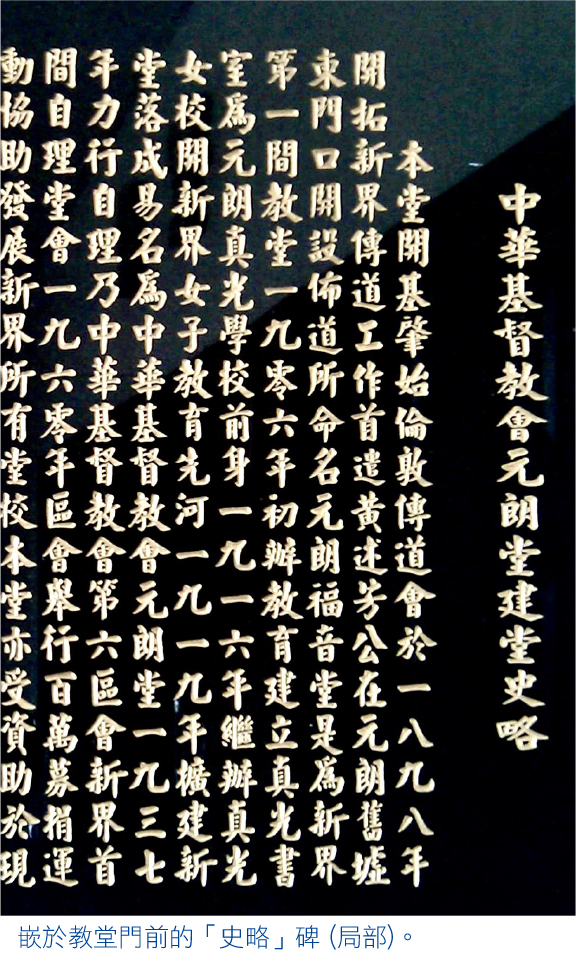 中華基督教會元朗堂建堂史略
本堂開基肇始倫敦傳道會於一八九八年
開拓新界傳道工作首遣黃述芳公在元朗舊墟
東門口開設佈道所命名元朗福音堂是為新界
第一間教堂一九零六年初辦教育建立真光書
室為元朗真光學校前身一九一六年繼辦真光
女校開新界女子教育先河一九一九年擴建新
堂落成易名為中華基督教會元朗堂一九三七
年力行自理乃中華基督教會第六區會新界首
間自理堂會一九六零年區會舉行百萬募捐運
動協助發展新界所有堂校本堂亦受資助於現
嵌於教堂門前的「史略」碑 (局部)。